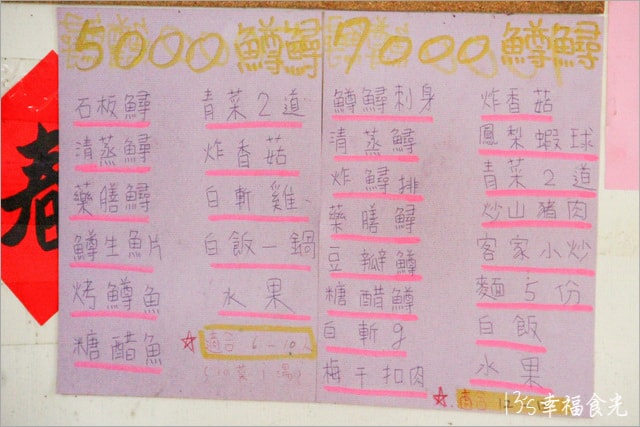 春
5000鱒鱘
石板鱘
清蒸鱘
藥膳鱘
鱒生魚片
烤鱒魚
糖醋魚
青菜2道
炸香菇
白斬雞
白飯一鍋
水果
適合 6-10人
7000鱒鱘
鱒鱘刺身
清蒸鱘
炸鱘排
藥膳鱘
豆瓣鱒
糖醋鱒
白斬g
梅干扣肉
炸香菇
鳳梨蝦球
青菜2道
炒山豬肉
客家小炒
麵5份
白飯
水果
13's幸福食光